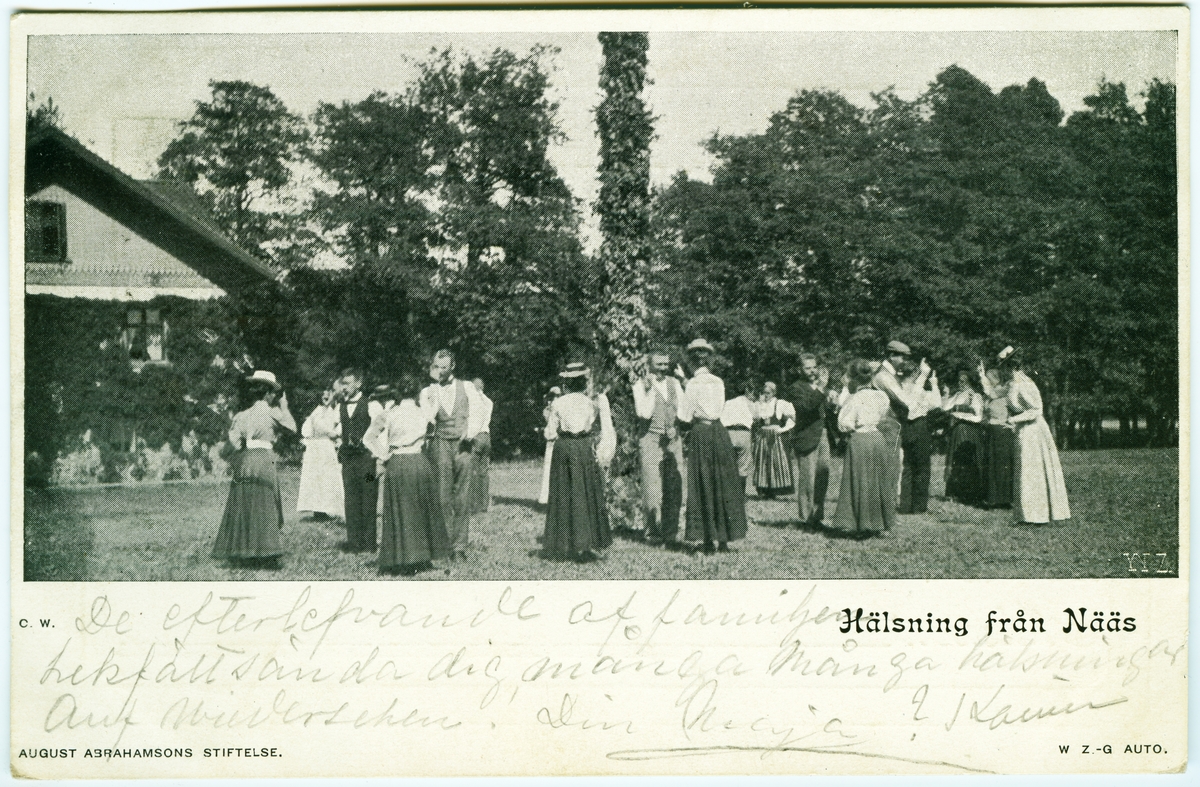 YIZ
C. W.
De efterlefvande af familjen
Hälsning från Nääs
sända dig många många hälsningar
Auf Wiedersehen! Din Maja
AUGUST ABRAHAMSONS STIFTELSE.
W Z.-G AUTO.